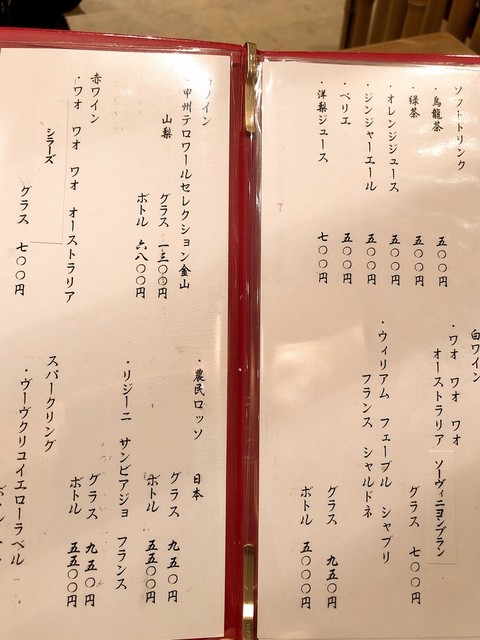 ソフトドリンク
・烏龍茶 五〇〇円
・緑茶 五〇〇円
・オレンジジュース 五〇〇円
・ジンジャーエール 五〇〇円
・ペリエ 五〇〇円
・洋梨ジュース 七〇〇円
白ワイン
・ワオ ワオ ワオ
オーストラリア ソーヴィニヨンブラン
グラス 七〇〇円
・ウィリアム フェーブル シャブリ
フランス シャルドネ
グラス 九五〇円
ボトル 五〇〇〇円
ワイン
・甲州テロワールセレクション金山
山梨
グラス 一三〇〇円
ボトル 六八〇〇円
赤ワイン
・ワオ ワオ ワオ オーストラリア
シラーズ
グラス 七〇〇円
・農民ロッソ 日本
グラス 九五〇円
ボトル 五五〇〇円
・リジーニ サンビアジョ フランス
グラス 九五〇円
ボトル 五五〇〇円
スパークリング
・ヴーヴクリコイエローラベル